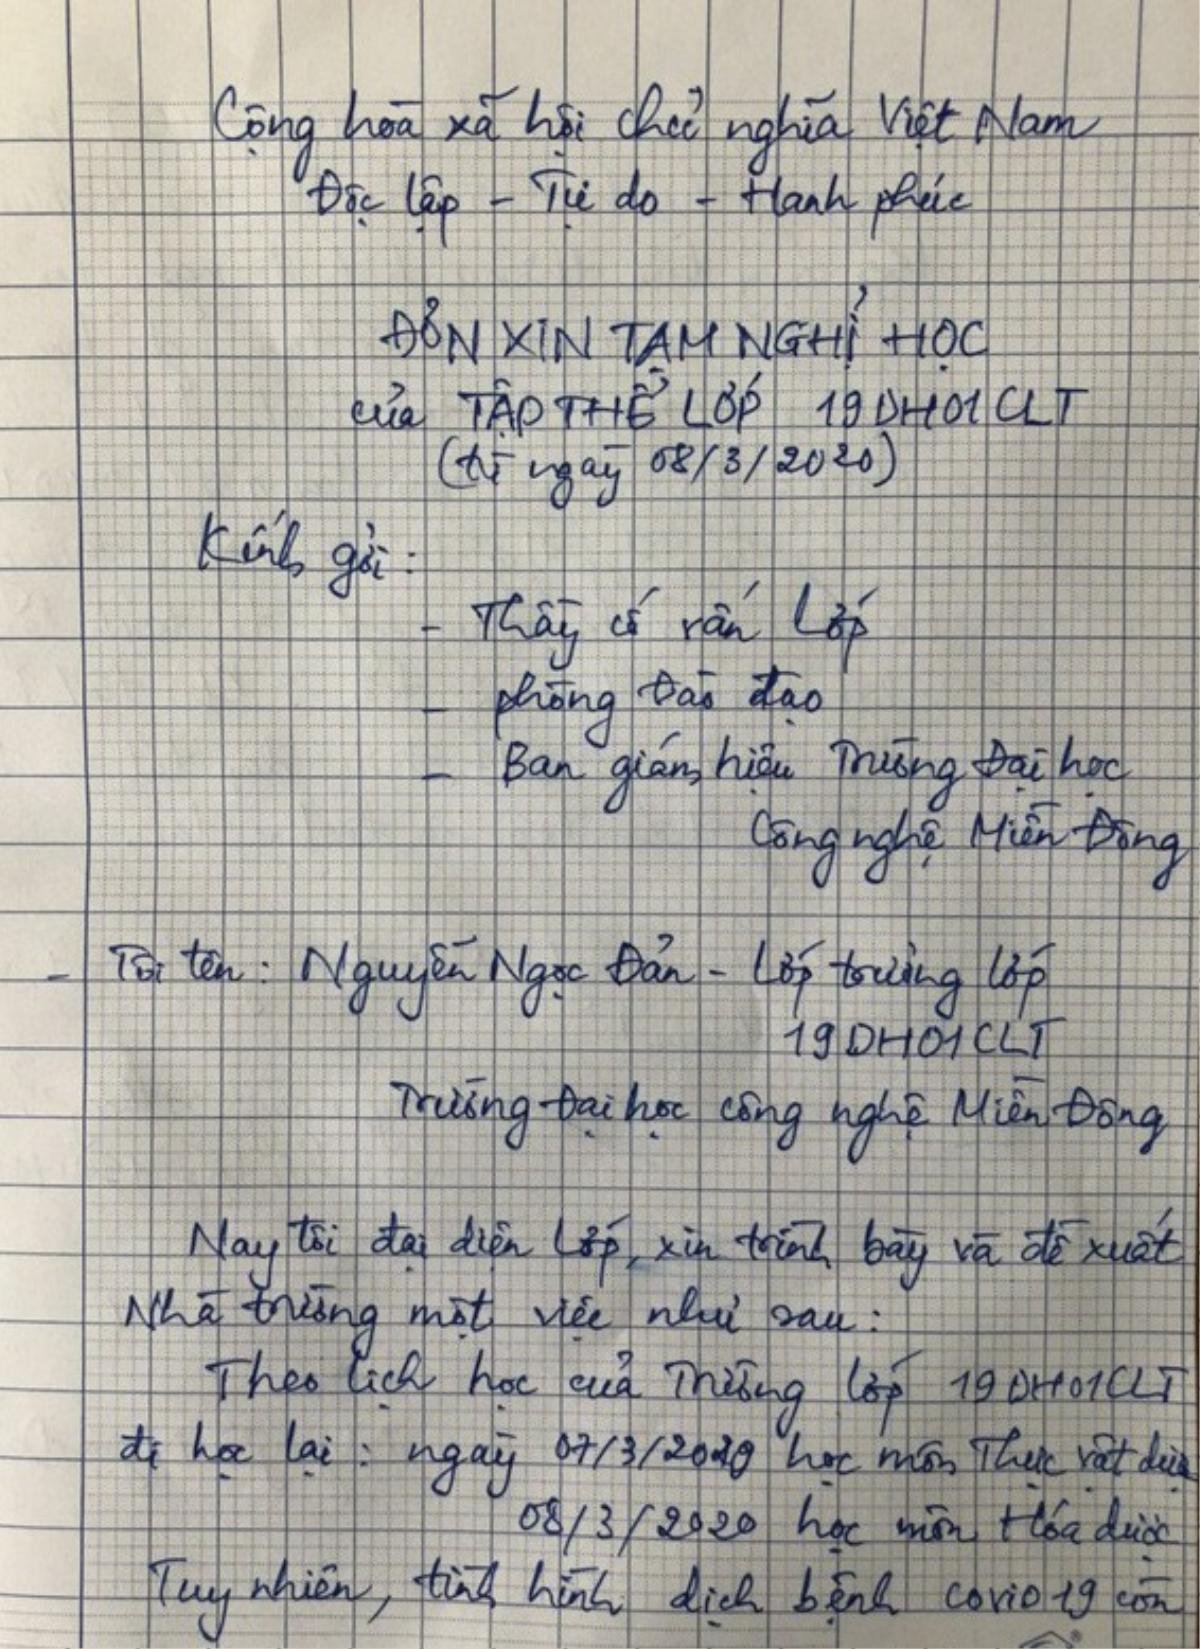 Cộng hòa xã hội chủ nghĩa Việt Nam
Độc lập - Tự do - Hạnh phúc
ĐƠN XIN TẠM NGHỈ HỌC
của TẬP THỂ LỚP 19DH01CLT
(từ ngày 08/3/2020)
Kính gởi:
- Thầy cố vấn Lớp
- phòng Đào đạo
- Ban giám hiệu Trường Đại học
Công nghệ Miền Đông
- Tôi tên: Nguyễn Ngọc Đản - Lớp trưởng lớp
19DH01CLT
Trường Đại học công nghệ Miền Đông
Nay tôi đại diện Lớp, xin trình bày và đề xuất
Nhà trường một việc như sau:
Theo lịch học của Trường lớp 19DH01CLT
đi học lại: ngày 07/3/2020 học môn Thực vật dược
08/3/2020 học môn Hóa dược
Tuy nhiên, tình hình dịch bệnh covid 19 còn